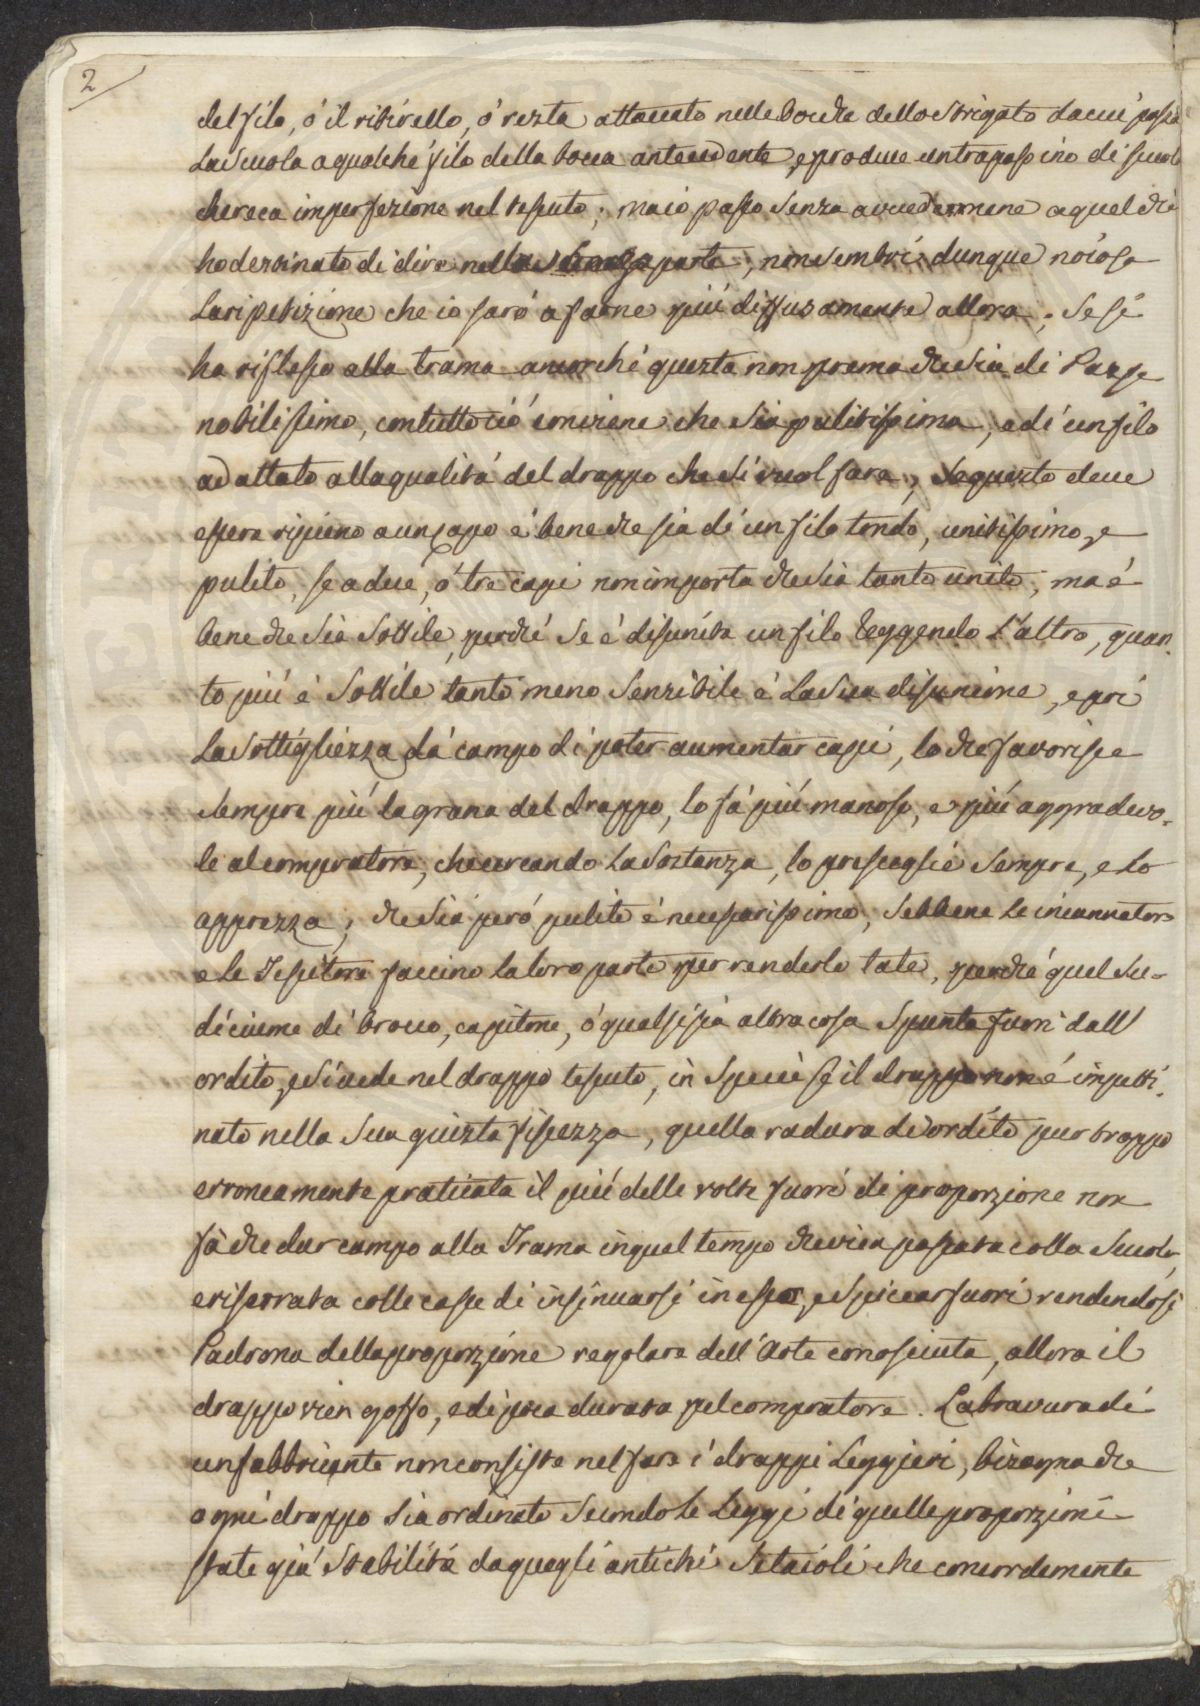 2
del filo, ó il ritirello, ó resta attaccato nelle bocche dello strigato da cui passa
la scuola a qualche filo della bocca antecedente, e produce un trapassino di scuola
che reca imperfezione nel tessuto; ma io passo senza avvedermene a quel che
ho destinato di dire nella parte; non sembri dunque noiosa
la ripetizione che io faró a farne piú diffusamente allora; Se si
ha riflesso alla trama ancorché questa non prema che sia di
nobilissimo, con tutto ció conviene che sia pulitissima, e di un filo
adattato alla qualitá del drappo che si vuol fare; Se questo deve
essere ripieno a un capo é bene che sia di un filo tondo, unitissimo, e
pulito, se a due, ó tre capi non importa che sia tanto unito; ma é
bene che sia sottile, perché se é disunita un filo reggendo l'altro, quan-
to piú é sottile tanto meno sensibile é la sua disunione, e poi
la sottigliezza dá campo di poter aumentar capi, lo che favorisce
sempre piú la grana del drappo, lo fá piú manoso, e piú aggradevo-
le al compratore, che cercando la sostanza, lo presceglie sempre, e lo
apprezza; che sia peró pulito é necessarissimo, sebbene le incannatore
e le Tessitore faccino la loro parte per renderlo tale, perché quel su-
diciume di brocco, capitone, ó qualsisia altra cosa spunta fuori dall'
ordito, e si vede nel drappo tessuto, in specie se il drappo non é impetti-
nato nella sua giusta fissezza, quella radura di ordito pur troppo
erroneamente praticata il piú delle volte fuori di proporzione non
fá che dar campo alla Trama in quel tempo che vien passata colla scuola,
e riserrata colle casse di insinuarsi in esso, e spiccar fuori rendendosi
Padrona della proporzione regolare dell'Arte conosciuta, allora il
drappo vien goffo, e di poca durata pel compratore. La bravura di
un fabbricante non consiste nel fare i drappi leggieri, bisogna che
ogni drappo sia ordinato secondo le leggi di quelle proporzioni
state giá stabilite da quegli antichi Setaioli che concordemente